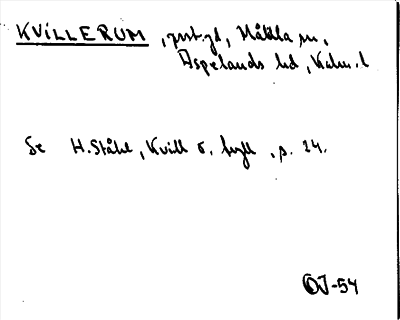 KVILLERUM, prst.gd, Målilla sn,
Aspelands hd, Kalm. l
Se H. Ståhl, Kvill o. tyll, p. 24.
OJ-54